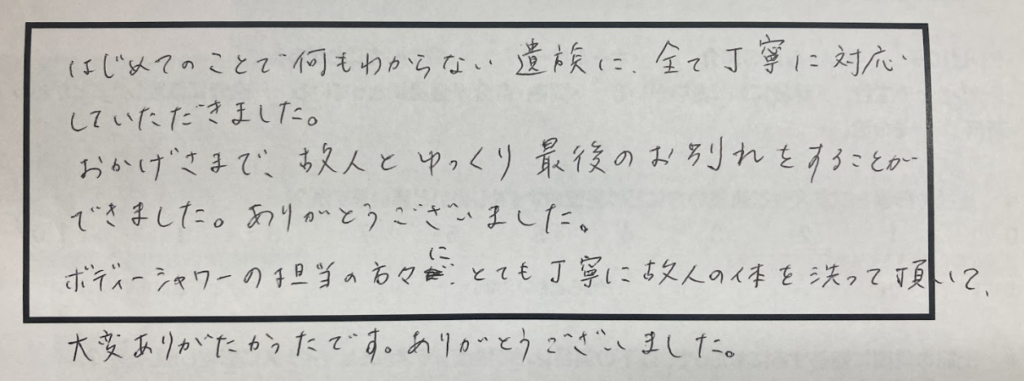 はじめてのことで何もわからない遺族に、全て丁寧に対応
していただきました。
おかげさまで、故人とゆっくり最後のお別れをすることが
できました。ありがとうございました。
ボディーシャワーの担当の方々に、とても丁寧に故人の体を洗って頂いて、
大変ありがたかったです。ありがとうございました。